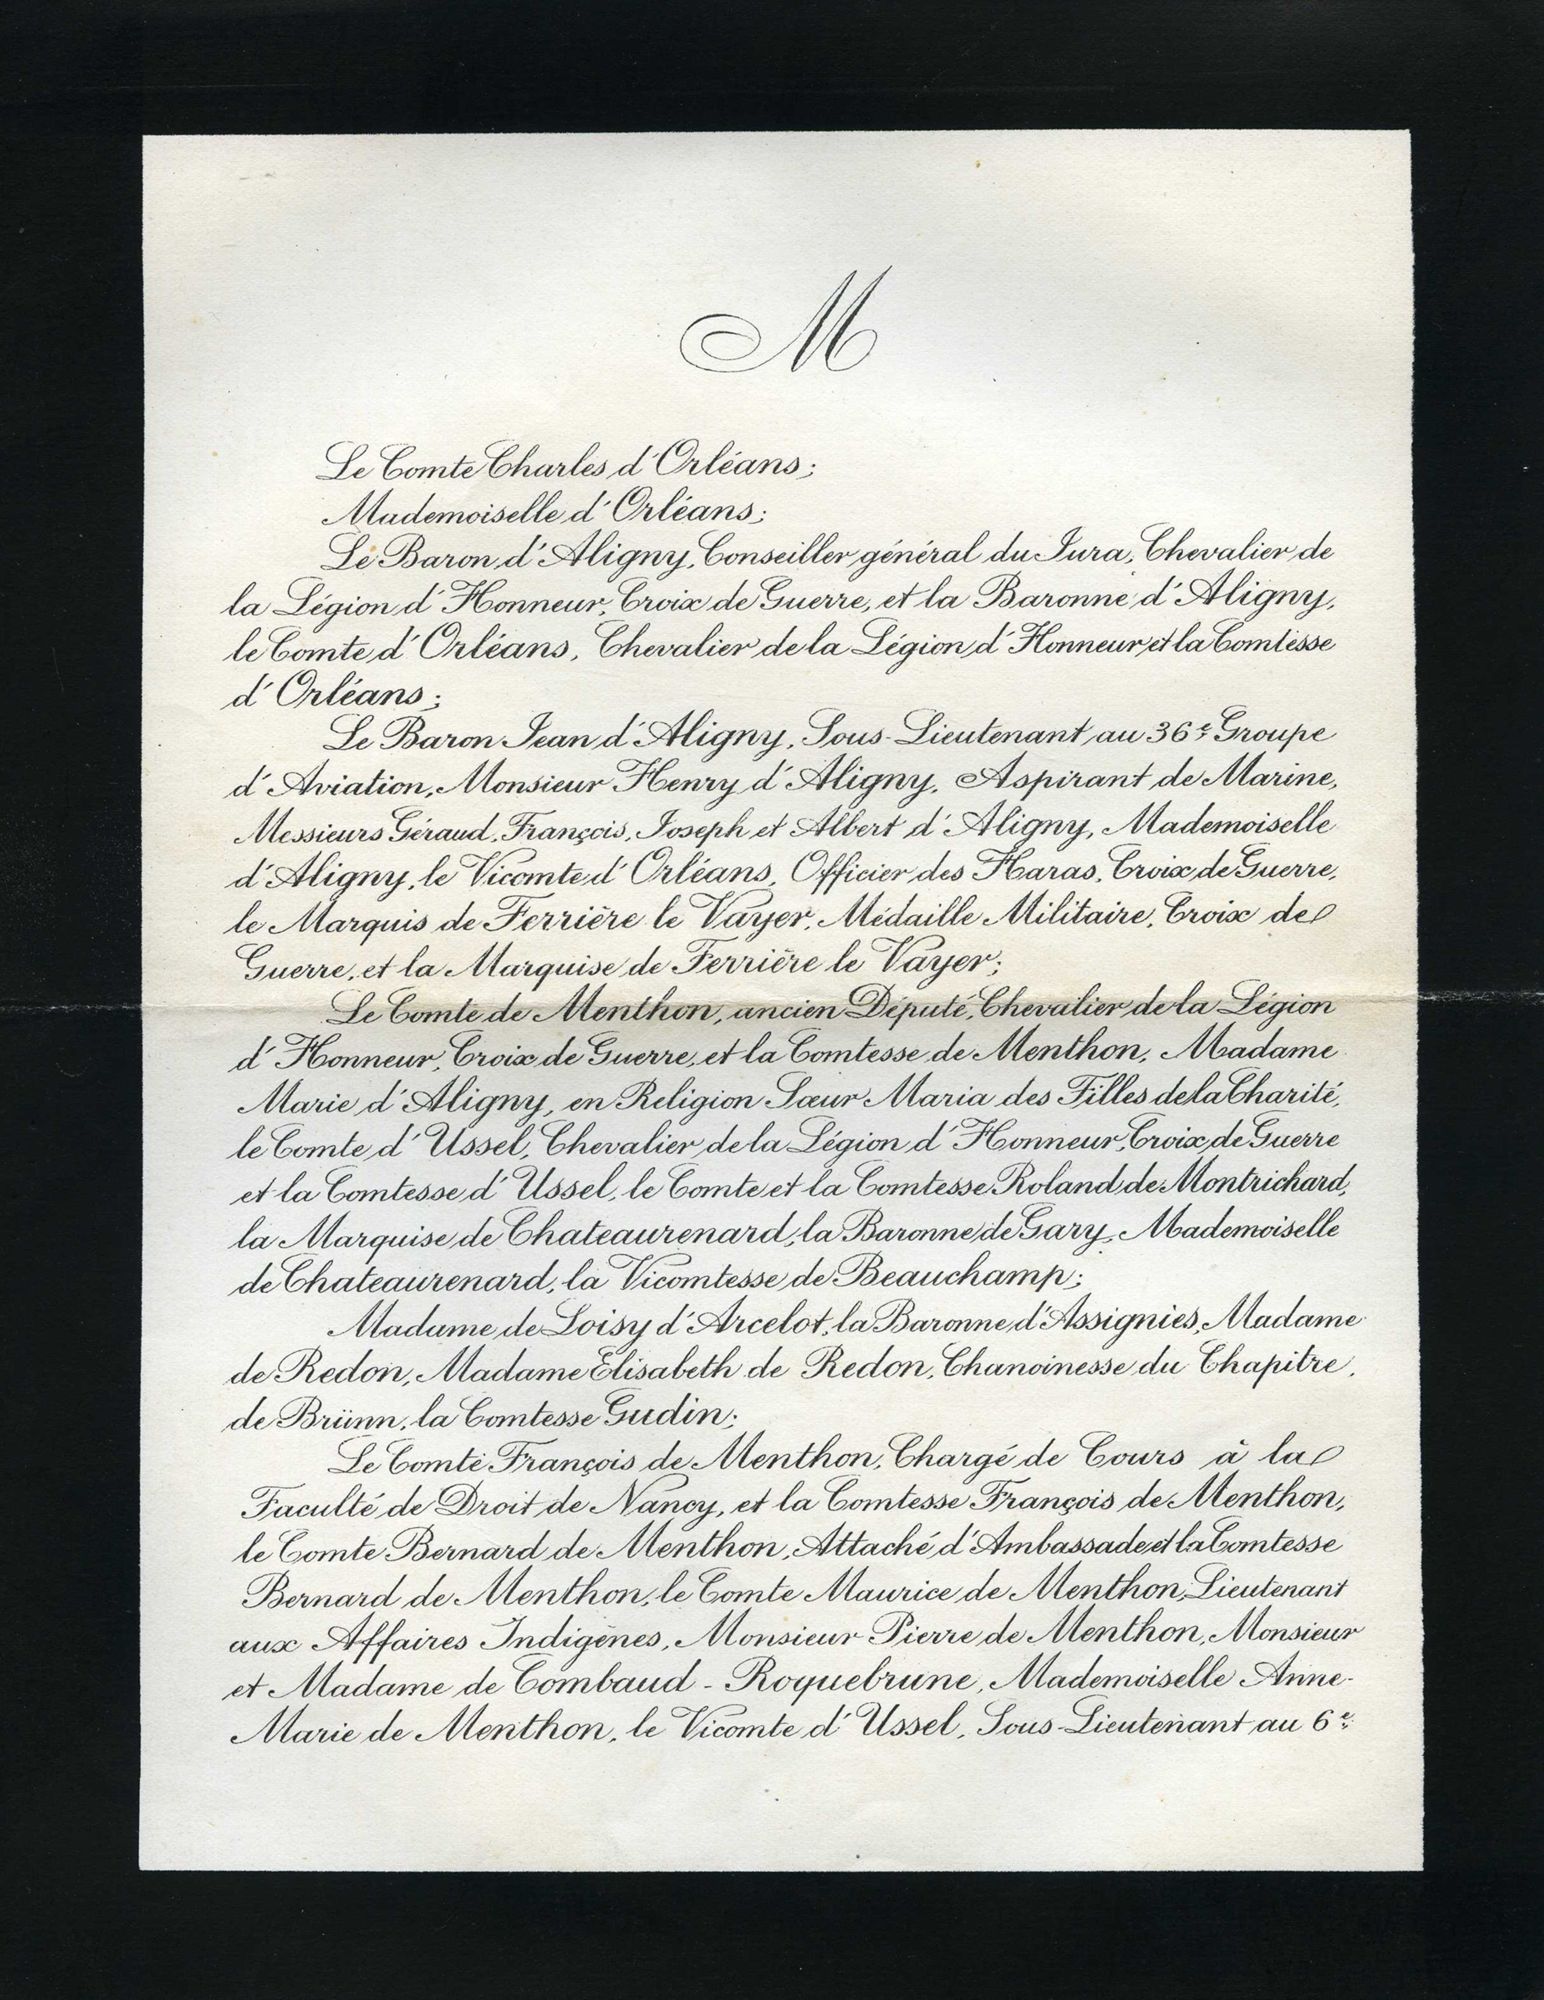 M
Le Comte Charles d'Orléans;
Mademoiselle d'Orléans;
Le Baron d'Aligny, Conseiller général du Jura, Chevalier de
la Légion d'Honneur, Croix de Guerre, et la Baronne d'Aligny,
le Comte d'Orléans, Chevalier de la Légion d'Honneur et la Comtesse
d'Orléans;
Le Baron Jean d'Aligny, Sous-Lieutenant au 36e Groupe
d'Aviation, Monsieur Henry d'Aligny, Aspirant de Marine,
Messieurs Géraud, François, Joseph et Albert d'Aligny, Mademoiselle
d'Aligny, le Vicomte d'Orléans, Officier des Haras, Croix de Guerre,
le Marquis de Ferrière le Vayer, Médaille Militaire, Croix de
Guerre, et la Marquise de Ferrière le Vayer;
Le Comte de Menthon, ancien Député, Chevalier de la Légion
d'Honneur, Croix de Guerre, et la Comtesse de Menthon, Madame
Marie d'Aligny, en Religion Sœur Maria des Filles de la Charité,
le Comte d'Ussel, Chevalier de la Légion d'Honneur, Croix de Guerre
et la Comtesse d'Ussel, le Comte et la Comtesse Roland de Montrichard,
la Marquise de Chateaurenard, la Baronne de Gary, Mademoiselle
de Chateaurenard, la Vicomtesse de Beauchamp;
Madame de Loisy d'Arcelot, la Baronne d'Assignies, Madame
de Redon, Madame Elisabeth de Redon, Chanoinesse du Chapitre
de Brünn, la Comtesse Gudin;
Le Comte François de Menthon, Chargé de Cours à la
Faculté de Droit de Nancy, et la Comtesse François de Menthon,
le Comte Bernard de Menthon, Attaché d'Ambassade et la Comtesse
Bernard de Menthon, le Comte Maurice de Menthon, Lieutenant
aux Affaires Indigènes, Monsieur Pierre de Menthon, Monsieur
et Madame de Combaud-Roquebrune, Mademoiselle Anne-
Marie de Menthon, le Vicomte d'Ussel, Sous-Lieutenant au 6e